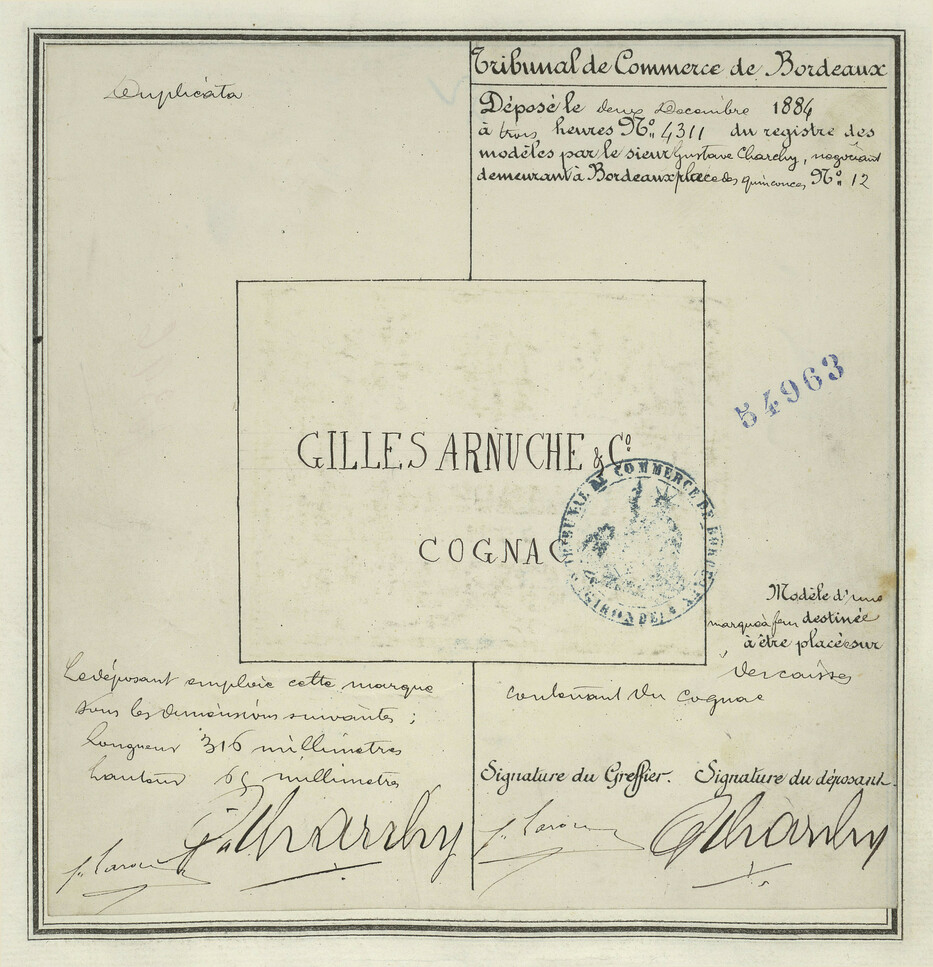 Duplicata
Tribunal de Commerce de Bordeaux
Déposé le deux Décembre 1884
à trois heures No. 4311 du registre des
modèles par le sieur Gustave Charchy, négociant
demeurant à Bordeaux place des quinconces No. 12
54963
GILLES ARNUCHE & Co.
COGNAC
TRIBUNAL DE COMMERCE DE BORDEAUX
GIRONDE
Modèle d'une
marque à feu destinée
à être placée sur
des caisses
contenant du cognac
Le déposant emploie cette marque
sous les dimensions suivantes ;
longueur 316 millimetres
hauteur 65 millimetres
Signature du Greffier. Signature du déposant.